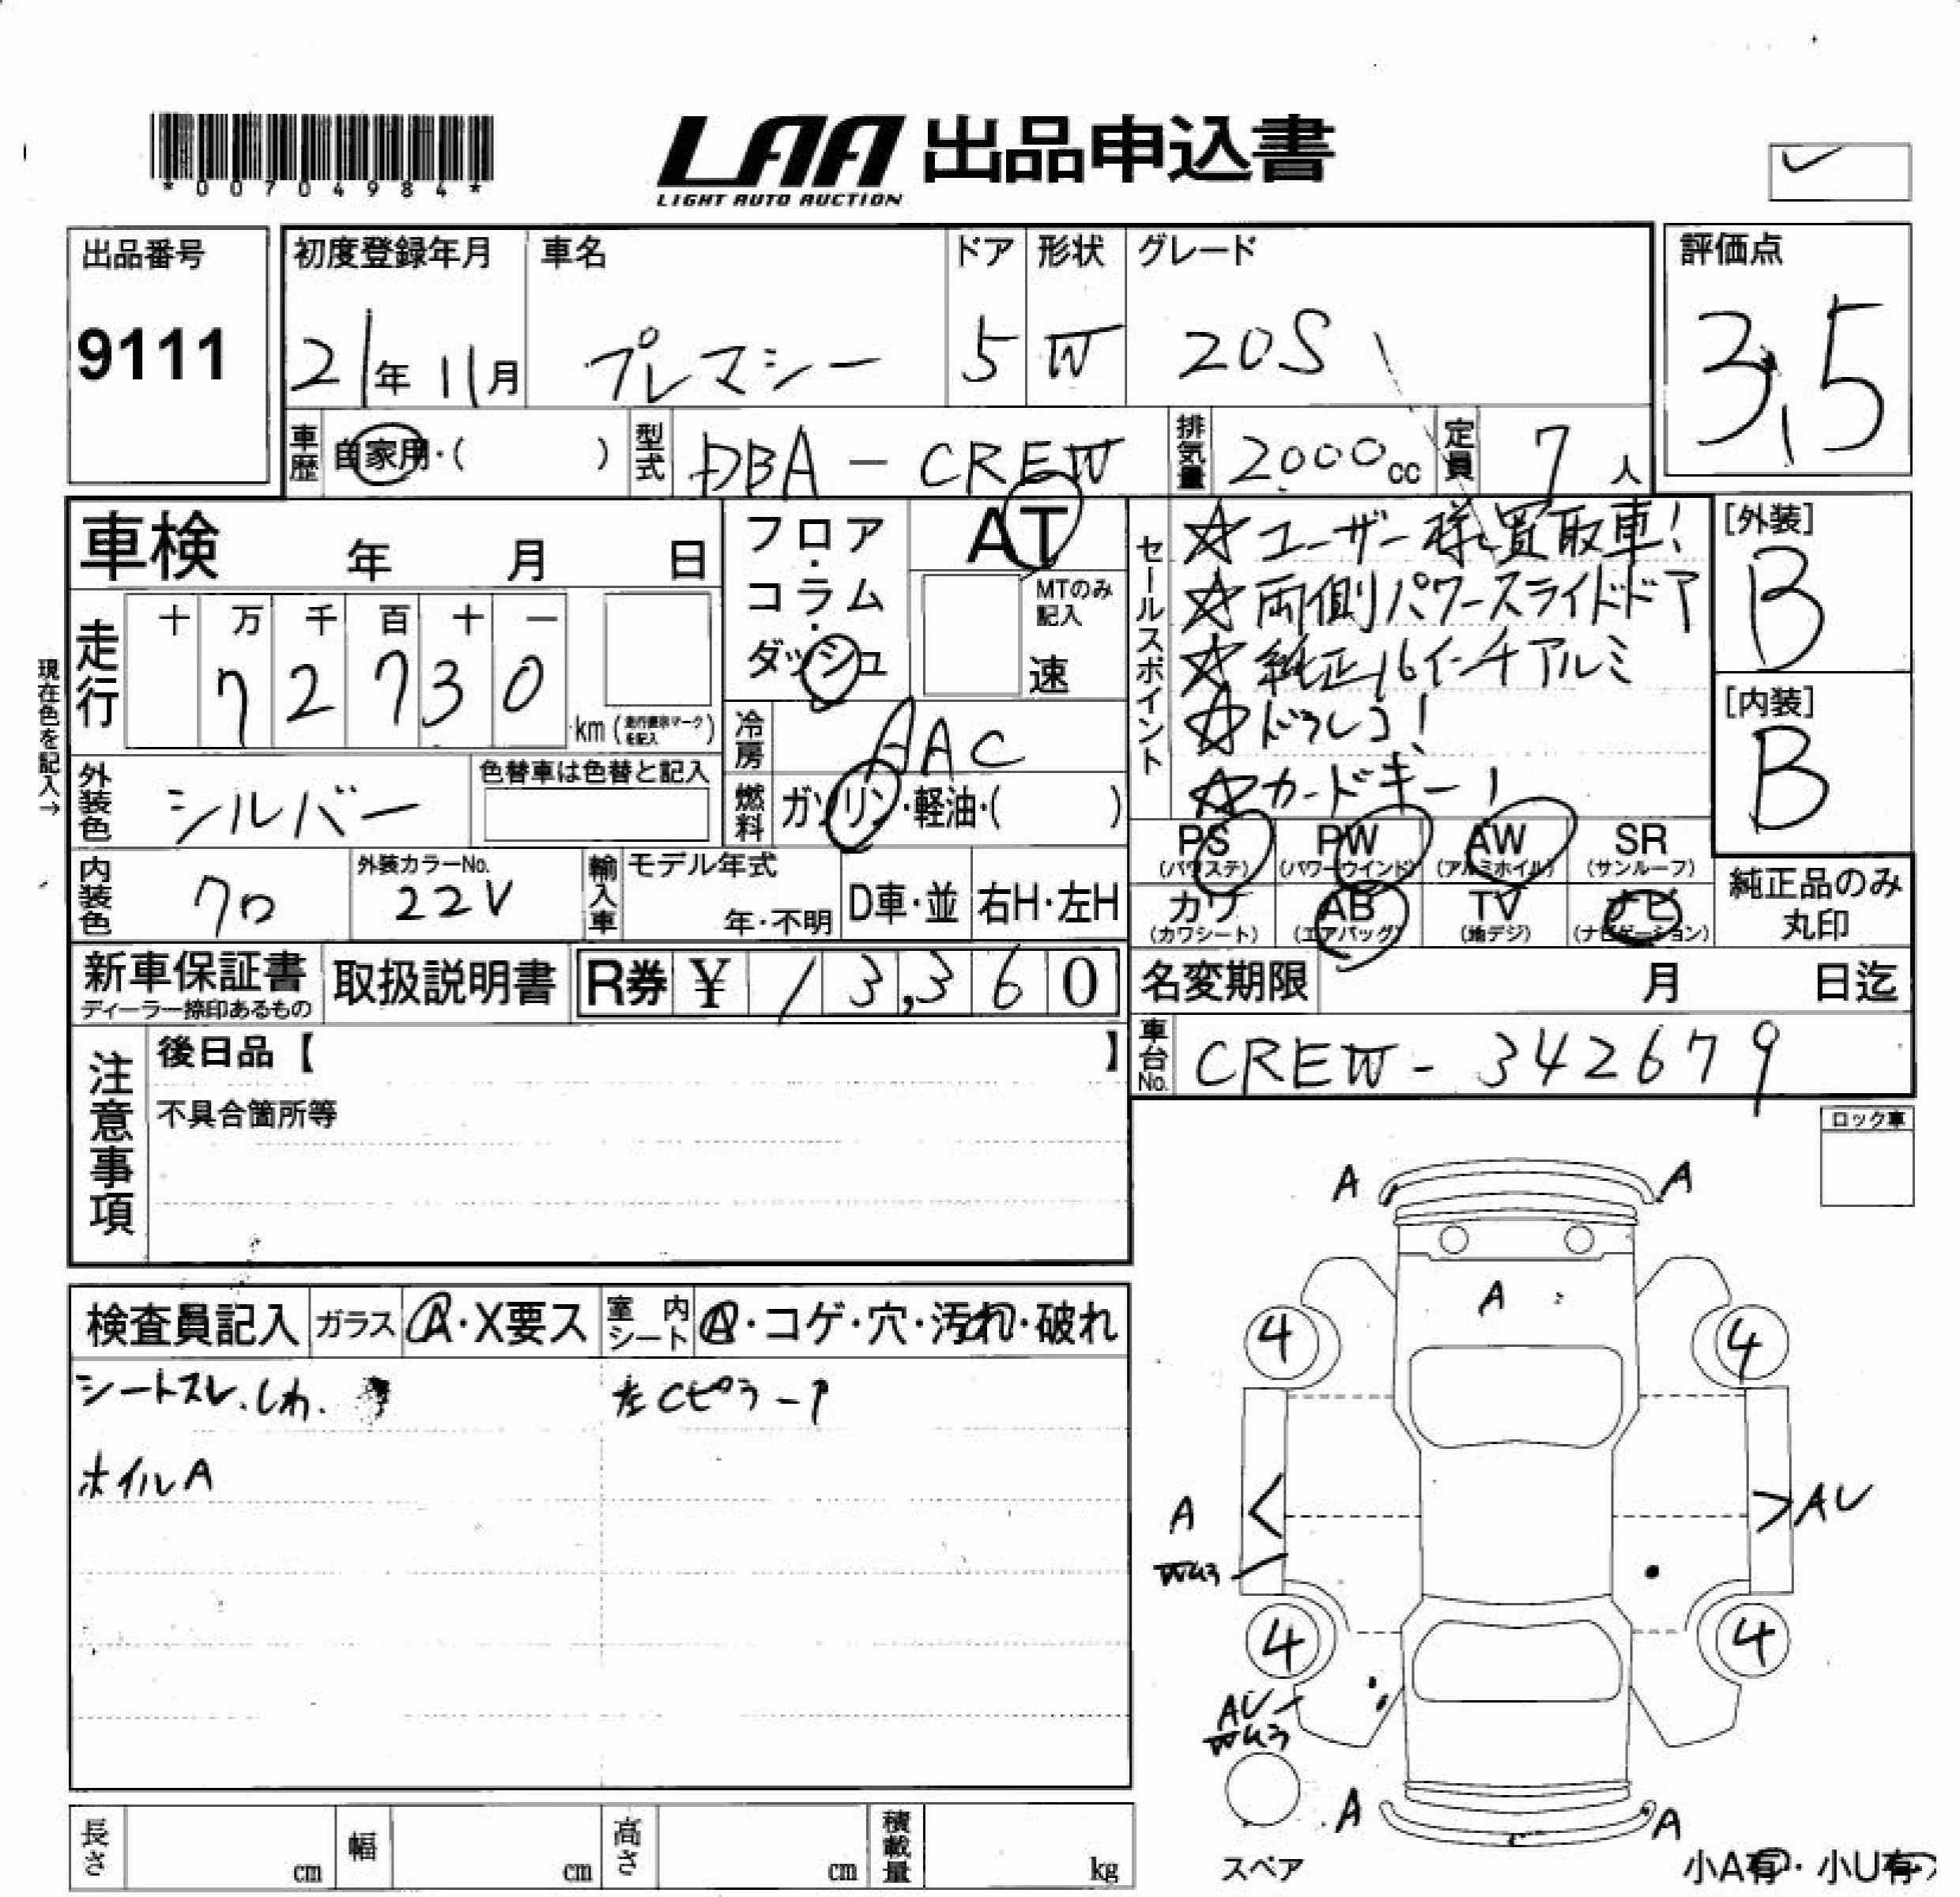 *00704984*
LAA 出品申込書
LIGHT AUTO AUCTION
出品番号
9111
初度登録年月
21年 11月
車名
プレマシー
ドア
5
形状
W
グレード
20S
評価点
3.5
車歴
自家用・( )
型式
DBA-CREW
排気量
2000cc
定員
7人
車検 年 月 日
フロア・コラム・ダッシュ
AT
MTのみ記入
速
現在色を記入→
走行
十 万 千 百 十 一
7 2 7 3 0
km (走行表示マークを記入)
冷房
AAC
燃料
ガソリン・軽油・( )
外装色
シルバー
色替車は色替と記入
内装色
クロ
外装カラーNo.
22V
輸入車
モデル年式
年・不明
D車・並
右H・左H
セールスポイント
☆ユーザー様買取車!
☆両側パワースライドドア
☆純正16インチアルミ
☆ドラレコ!
☆カードキー!
[外装]
B
[内装]
B
PS (パワステ)
PW (パワーウインド)
AW (アルミホイル)
SR (サンルーフ)
カワ (カワシート)
AB (エアバッグ)
TV (地デジ)
ナビ (ナビゲーション)
純正品のみ丸印
新車保証書
ディーラー捺印あるもの
取扱説明書
R券 ¥ 13,360
名変期限 月 日迄
車台No.
CREW-342679
注意事項
後日品【 】
不具合箇所等
ロック車
検査員記入
ガラス
A・X要ス
室内シート
A・コゲ・穴・汚れ・破れ
シートスレ.しわ.
左Cピラーア
ホイルA
A A
A
4 4
A AU
4 4
AU
A A
スペア
小A有・小U有
長さ cm
幅 cm
高さ cm
積載量 kg